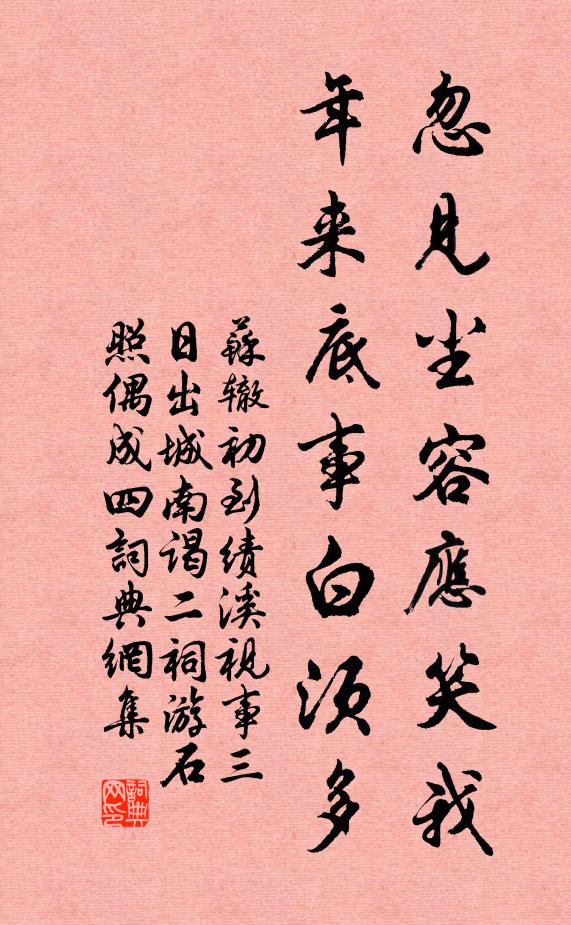 忽见尘容應笑我
年来底事白须多
蘇辙初到绩溪视事三
日出城南谒二祠游石
照偶成四詞典網集
詞典网印